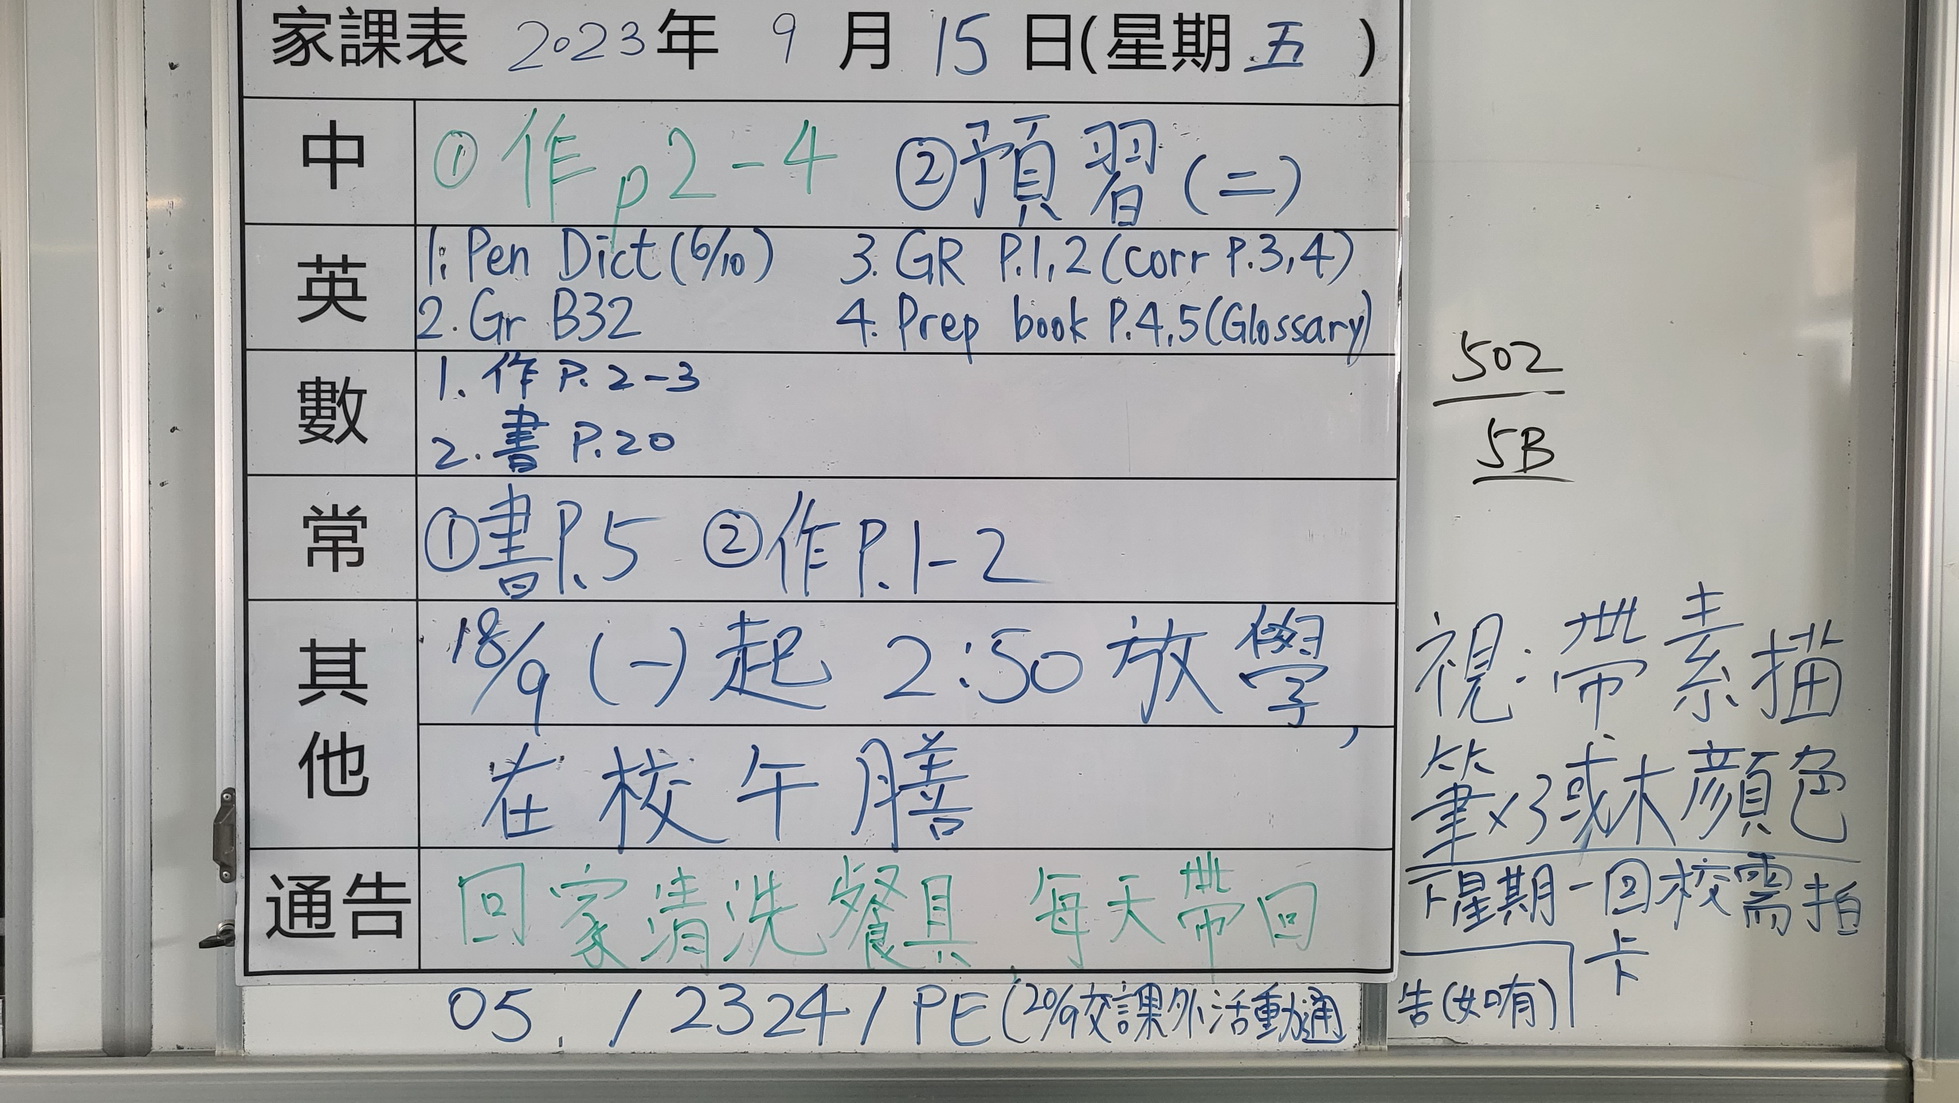 家課表 2023年 9月 15日(星期五)
中 ①作p2-4 ②預習(二)
英 1. Pen Dict(6/10) 3. GR P.1,2(corr P.3,4)
2. Gr B32 4. Prep book P.4,5(Glossary)
數 1. 作P.2-3
2. 書P.20
常 ①書P.5 ②作P.1-2
其他 18/9(一)起 2:50放學,
在校午膳
通告 回家清洗餐具,每天帶回
05 / 2324 / PE(20/9交課外活動通
告(如有)
502
5B
視:帶素描
筆x3或木顏色
下星期一回校需拍
卡